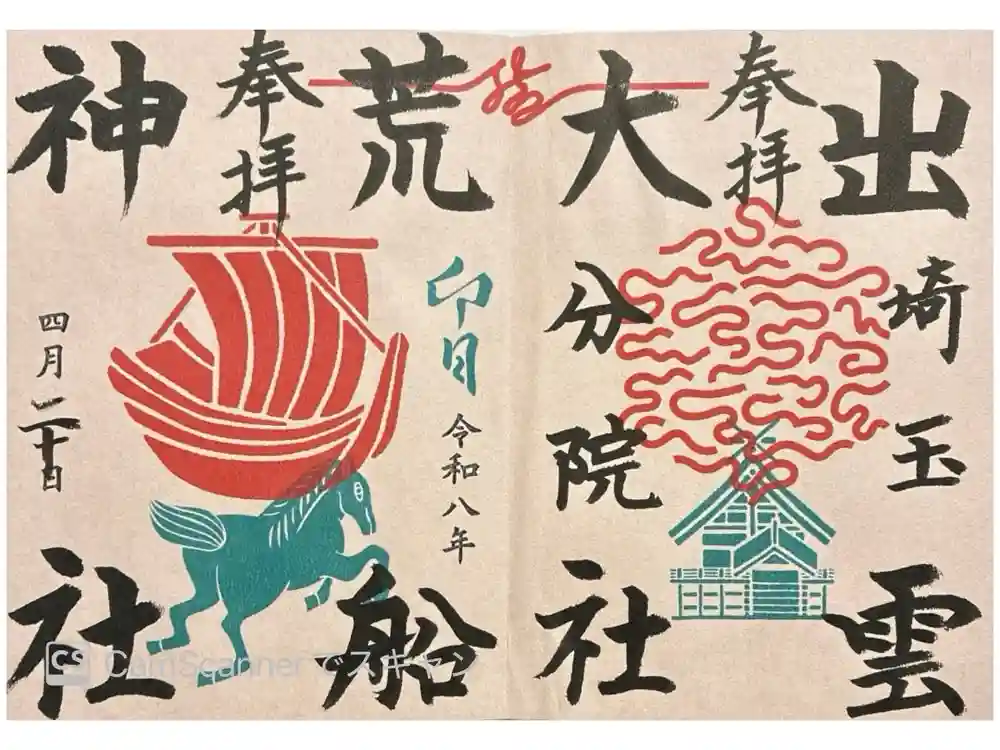 奉拝
出雲
大社
埼玉
分院
奉拝
荒船
神社
卯月
令和八年
四月二十日
CS CamScanner でスキャン